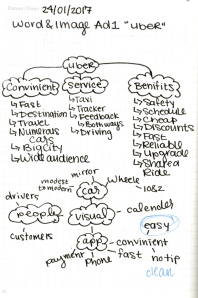 24/01/2017
Word & Image Ad1 "uber"
uber
Convinient
Fast
Destination
Travel
Numerals
cars
Big City
Wide audience
Service
Taxi
Tracker
Feedback
Both ways
Driving
Benifits
Safety
Schedule
Cheap
Discounts
Fast
Reliable
Upgrade
Shared
Ride
mirror
modest
to modern
car
wheele
drivers
people
customers
visual
calender
easy
app
payment
phone
convinient
fast
no tip
clean